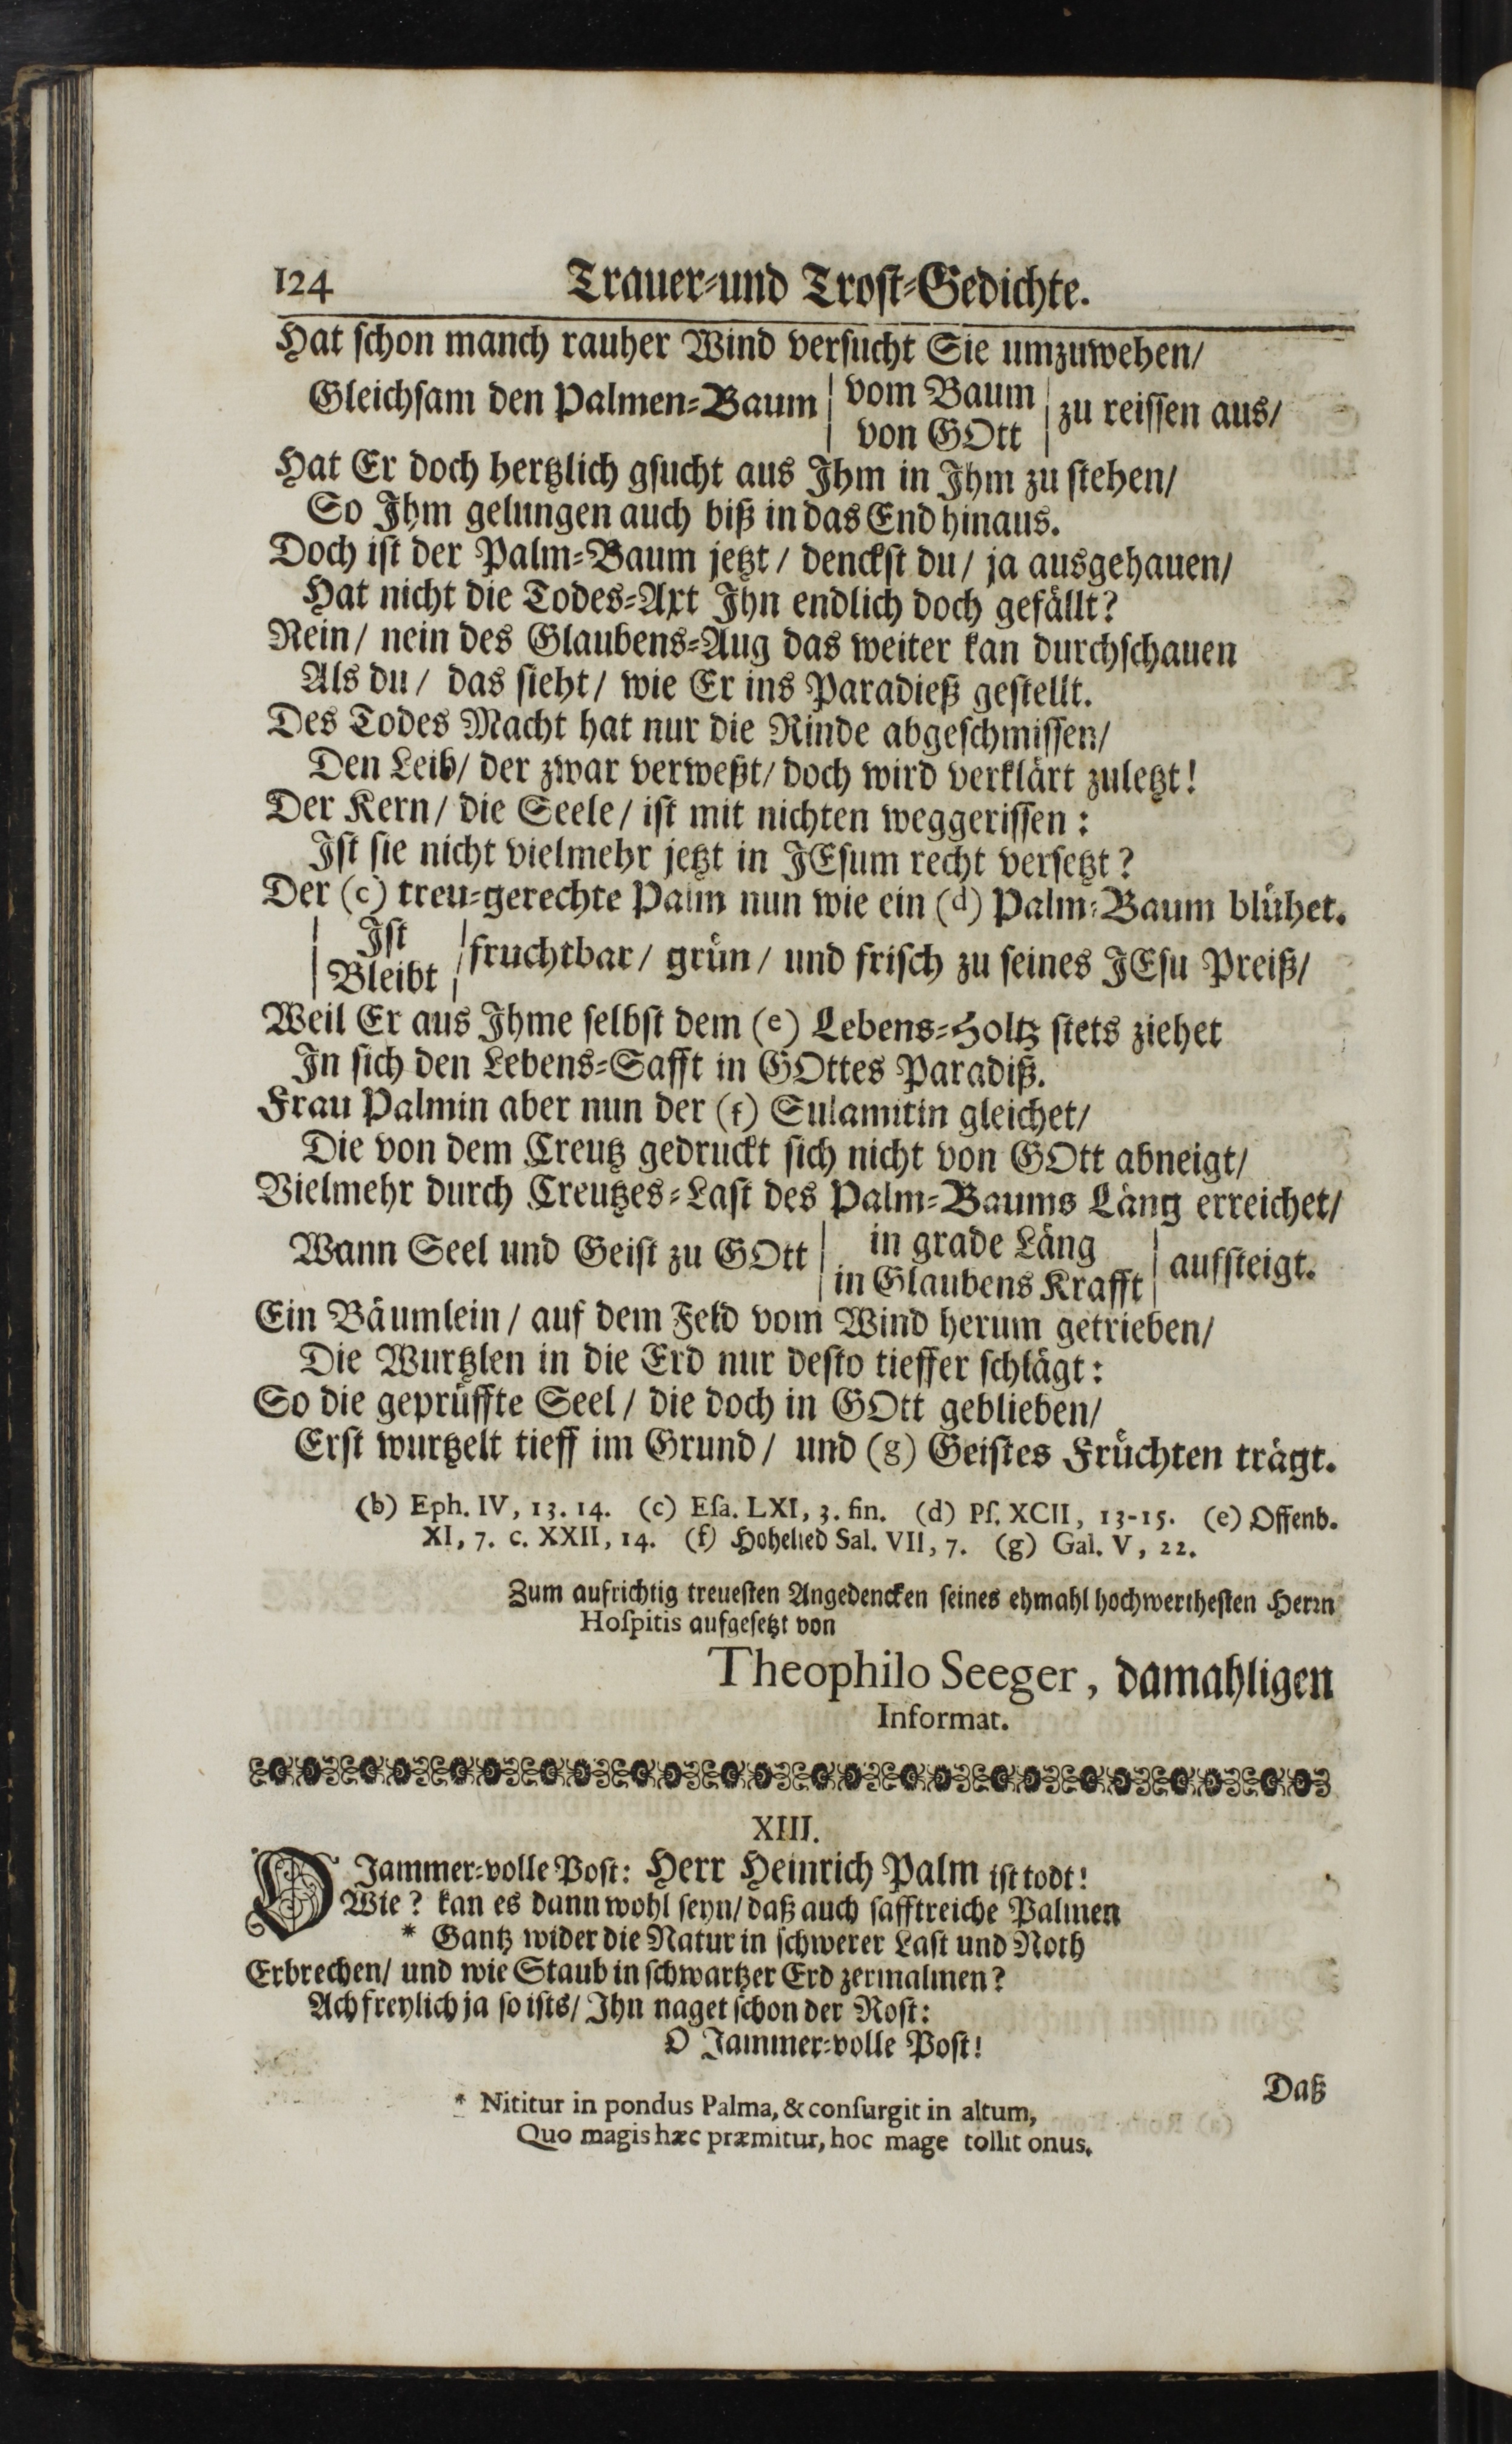 124 Trauer-und Trost-Gedichte.
Hat schon manch rauher Wind versucht Sie umzuwehen/
Gleichsam den Palmen-Baum | vom Baum | zu reissen aus/
von GOtt
Hat Er doch hertzlich gsucht aus Ihm in Ihm zu stehen/
So Ihm gelungen auch biß in das End hinaus.
Doch ist der Palm-Baum jetzt / denckst du / ja ausgehauen/
Hat nicht die Todes-Axt Ihn endlich doch gefällt?
Nein / nein des Glaubens-Aug das weiter kan durchschauen
Als du / das sieht / wie Er ins Paradieß gestellt.
Des Todes Macht hat nur die Rinde abgeschmissen/
Den Leib / der zwar verweßt / doch wird verklärt zuletzt!
Der Kern / die Seele / ist mit nichten weggerissen:
Ist sie nicht vielmehr jetzt in JEsum recht versetzt?
Der (c) treu-gerechte Palm nun wie ein (d) Palm-Baum blühet.
| Ist | fruchtbar / grün / und frisch zu seines JEsu Preiß/
| Bleibt |
Weil Er aus Ihme selbst dem (e) Lebens-Holtz stets ziehet
In sich den Lebens-Safft in GOttes Paradiß.
Frau Palmin aber nun der (f) Sulamitin gleichet/
Die von dem Creutz gedruckt sich nicht von GOtt abneigt/
Vielmehr durch Creutzes-Last des Palm-Baums Läng erreichet/
Wann Seel und Geist zu GOtt | in grade Läng | aufsteigt.
in Glaubens Krafft
Ein Bäumlein / auf dem Feld vom Wind herum getrieben/
Die Wurtzlen in die Erd nur desto tieffer schlägt:
So die geprüffte Seel / die doch in GOtt geblieben/
Erst wurtzelt tieff im Grund / und (g) Geistes Früchten trägt.
(b) Eph. IV, 13. 14. (c) Esa. LXI, 3. fin. (d) Ps. XCII, 13-15. (e) Offenb.
XI, 7. c. XXII, 14. (f) Hohelied Sal. VII, 7. (g) Gal. V, 22.
Zum aufrichtig treuesten Angedencken seines ehmahl hochwerthesten Herrn
Hospitis aufgesetzt von
Theophilo Seeger, damahligen
Informat.
XIII.
O Jammer-volle Post: Herr Heinrich Palm ist todt!
Wie? kan es dann wohl seyn / daß auch safftreiche Palmen
* Gantz wider die Natur in schwerer Last und Noth
Erbrechen / und wie Staub in schwartzer Erd zermalmen?
Ach freylich ja so ists / Ihn naget schon der Rost:
O Jammer-volle Post!
Daß
* Nititur in pondus Palma, & consurgit in altum,
Quo magis hæc præmitur, hoc mage tollit onus.